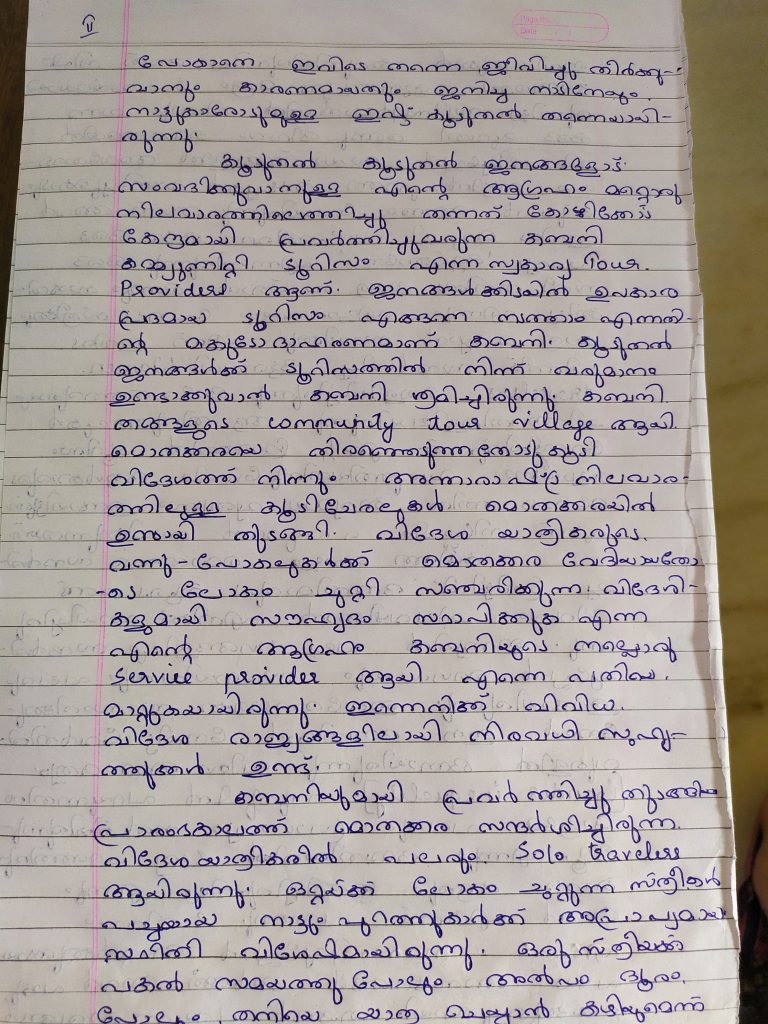 II
പോകാനെ ഇവിടെ തന്നെ ജീവിച്ചു തീർക്കു-
വാനും കാരണമായതും ജനിച്ച നാടിനേയും
നാട്ടുകാരോടുമുള്ള ഇഷ്ട കൂടുതൽ തന്നെയായി-
രുന്നു.
കൂടുതൽ കൂടുതൽ ജനങ്ങളോട്
സംവദിക്കുവാനുള്ള എന്റെ ആഗ്രഹം മറ്റൊരു
നിലവാരത്തിലെത്തിച്ചു തന്നത് കോഴിക്കോട്
കേന്ദ്രമായി പ്രവർത്തിച്ചുവരുന്ന കബനി
കമ്മ്യുണിറ്റി ടൂറിസം എന്ന സ്വകാര്യ Tour
Providers ആണ്. ജനങ്ങൾക്കിടയിൽ ഉപകാര
പ്രദമായ ടൂറിസം എങ്ങനെ നടത്താം എന്നതി-
ന്റെ മകുടോദാഹരണമാണ് കബനി. കൂടുതൽ
ജനങ്ങൾക്ക് ടൂറിസത്തിൽ നിന്ന് വരുമാനം
ഉണ്ടാക്കുവാൻ കബനി ശ്രമിച്ചിരുന്നു. കബനി
തങ്ങളുടെ community tour village ആയി
മൊതക്കരയെ തിരഞ്ഞെടുത്തതോടു കൂടി
വിദേശത്ത് നിന്നും അന്താരാഷ്ട്ര നിലവാര-
ത്തിലുള്ള കൂടിചേരലുകൾ മൊതക്കരയിൽ
ഉണ്ടായി തുടങ്ങി. വിദേശ യാത്രികരുടെ
വന്നു-പോകലുകൾക്ക് മൊതക്കര വേദിയായതോ
-ടെ ലോകം ചുറ്റി സഞ്ചരിക്കുന്ന വിദേശി-
കളുമായി സൗഹൃദം സ്ഥാപിക്കുക എന്ന
എന്റെ ആഗ്രഹം കബനിയുടെ നല്ലൊരു
Service provider ആയി എന്നെ പതിയെ
മാറ്റുകയായിരുന്നു. ഇന്നെനിക്ക് വിവിധ
വിദേശ രാജ്യങ്ങളിലായി നിരവധി സുഹൃ-
ത്തുക്കൾ ഉണ്ട്.
കബനിയുമായി പ്രവർത്തിച്ചു തുടങ്ങിയ
പ്രാരംഭകാലത്ത് മൊതക്കര സന്ദർശിച്ചിരുന്ന
വിദേശ യാത്രികരിൽ പലരും Solo travelers
ആയിരുന്നു. ഒറ്റയ്ക്ക് ലോകം ചുറ്റുന്ന സ്ത്രീകൾ
പച്ചയായ നാട്ടും പുറത്തുകാർക്ക് അപ്രാപ്യമായ
സ്ഥിതി വിശേഷമായിരുന്നു. ഒരു സ്ത്രീയ്ക്ക്
പകൽ സമയത്തു പോലും അൽപം ദൂരം
പോലും തനിയെ യാത്ര ചെയ്യാൻ കഴിയുമെന്ന്